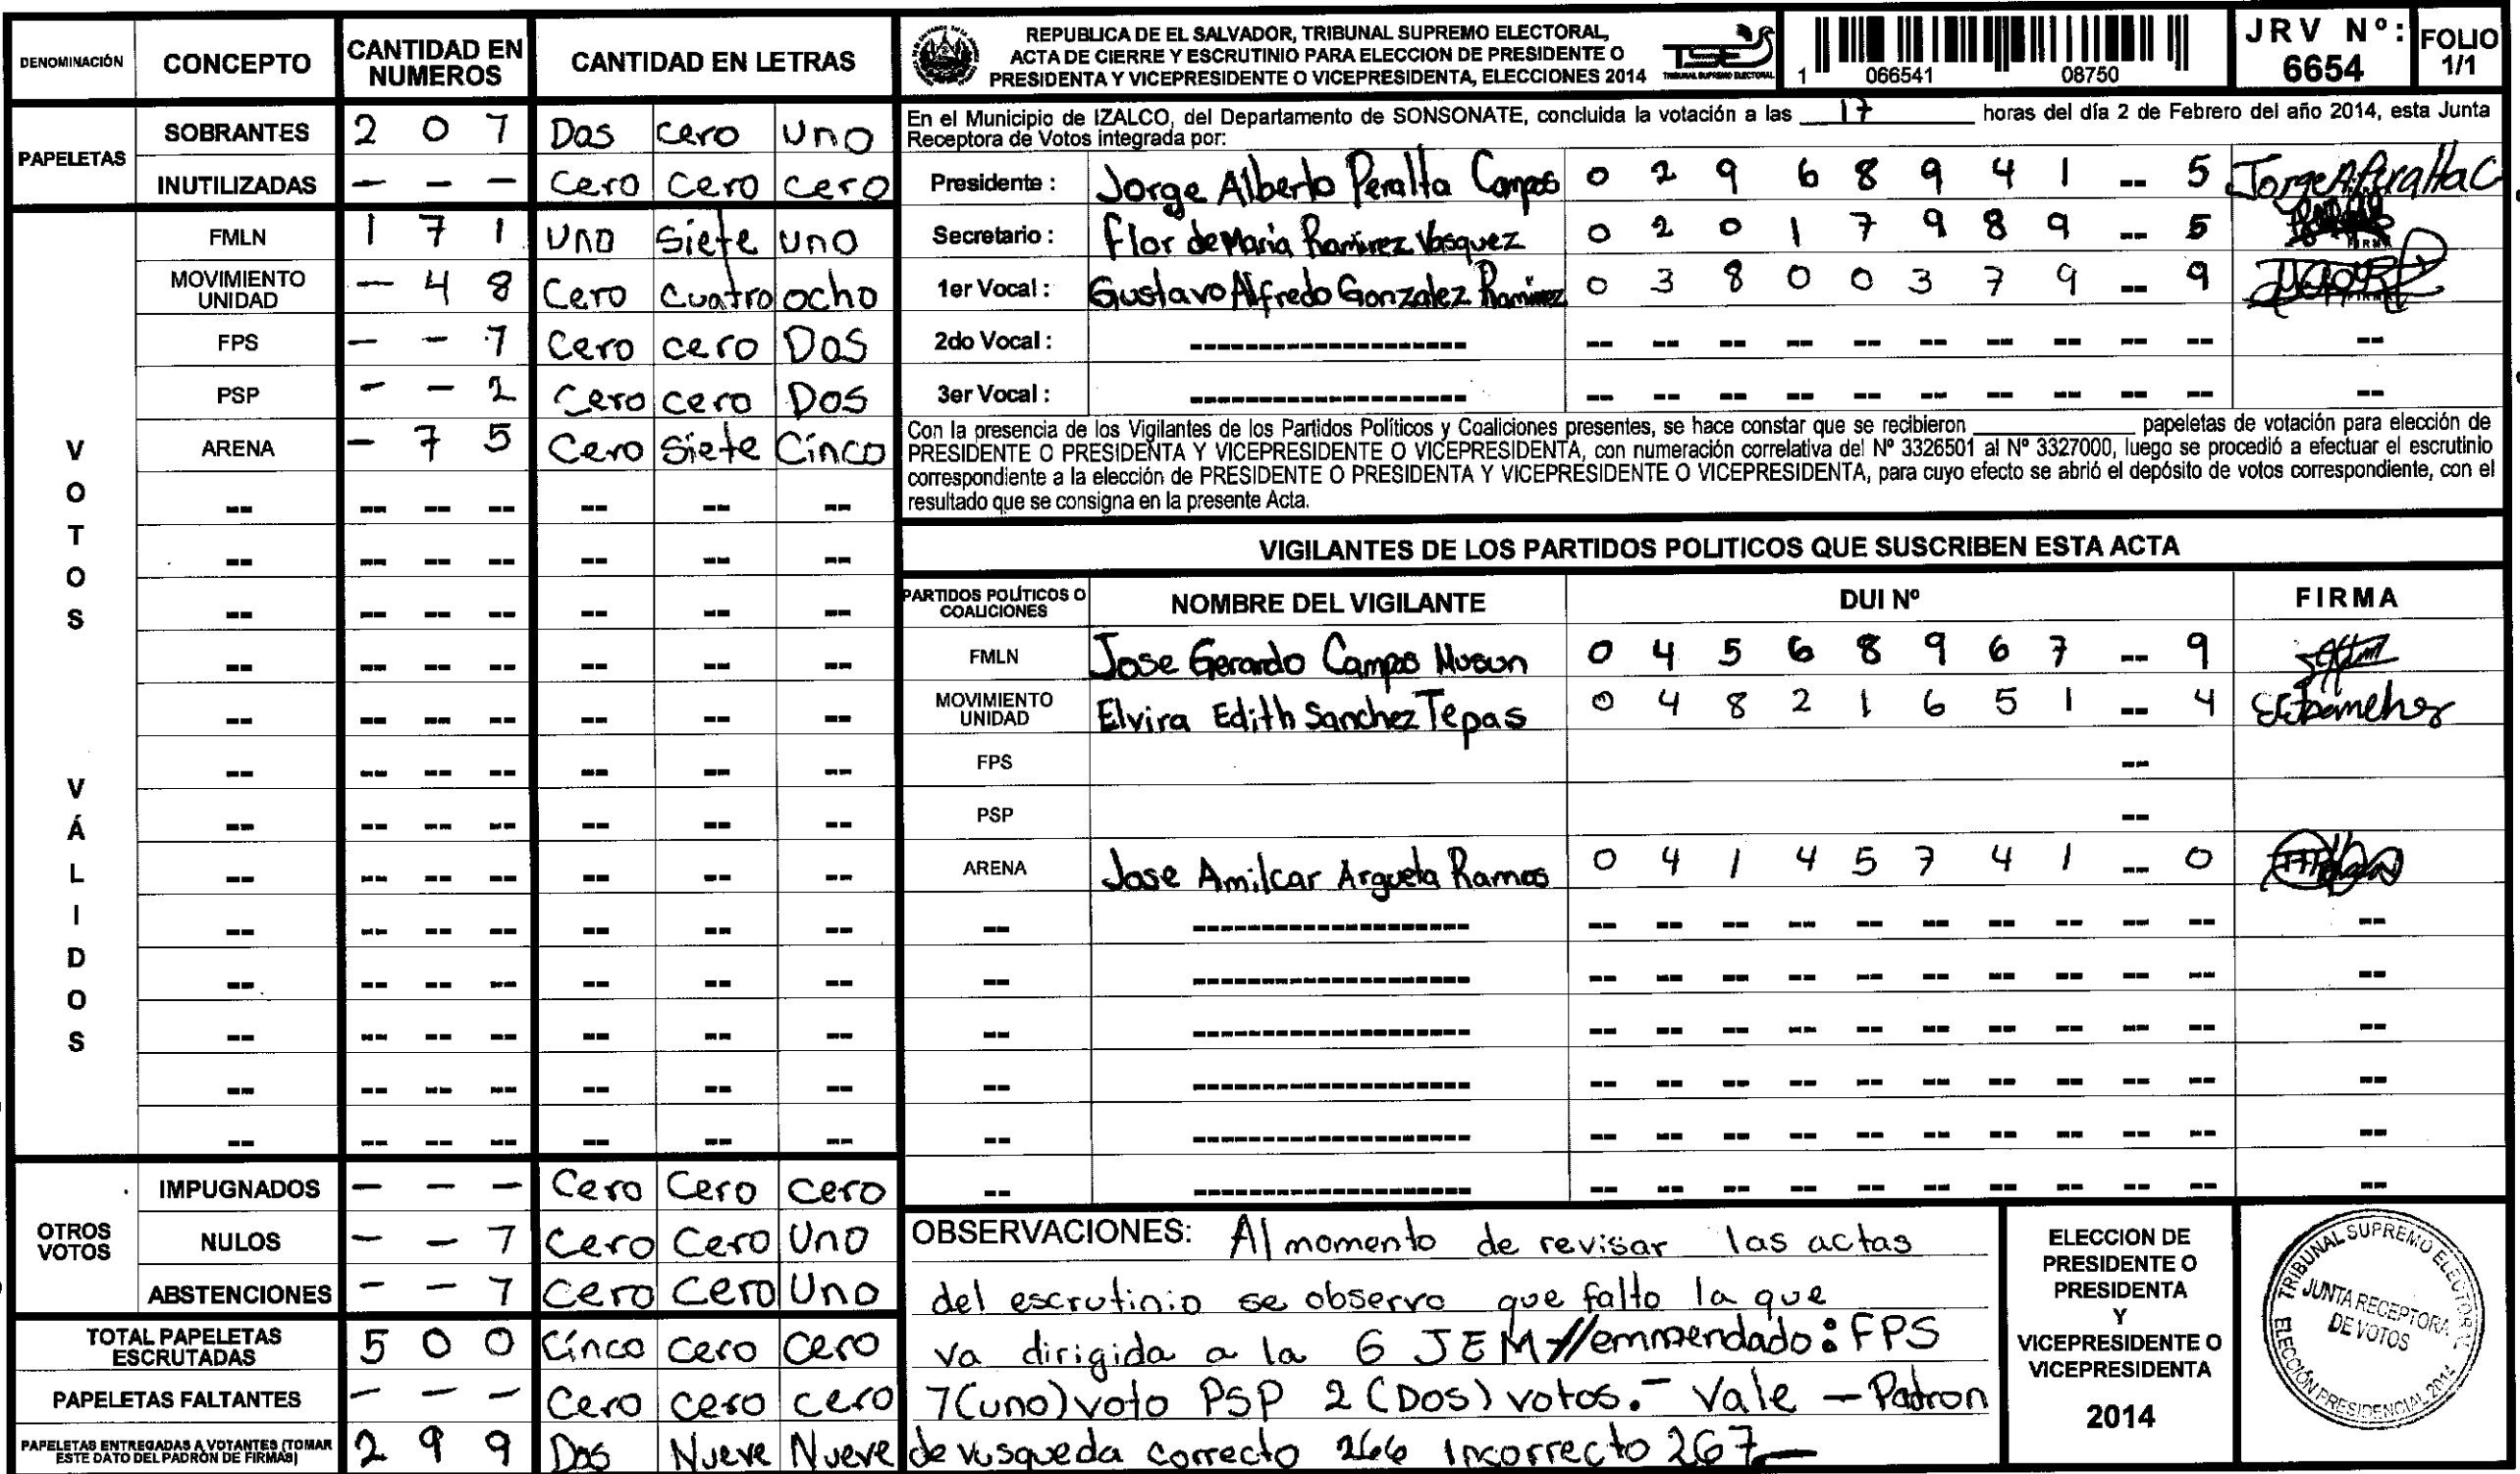 DENOMINACIÓN CONCEPTO CANTIDAD EN NUMEROS CANTIDAD EN LETRAS
PAPELETAS
SOBRANTES 2 0 7 Dos cero uno
INUTILIZADAS - - - Cero Cero cero
VOTOS VÁLIDOS
FMLN 1 7 1 uno siete uno
MOVIMIENTO UNIDAD - 4 8 Cero cuatro ocho
FPS - - 7 Cero cero Dos
PSP - - 2 Cero cero Dos
ARENA - 7 5 Cero Siete Cinco
OTROS VOTOS
IMPUGNADOS - - - Cero Cero cero
NULOS - - 7 Cero Cero Uno
ABSTENCIONES - - 7 Cero Cero Uno
TOTAL PAPELETAS ESCRUTADAS 5 0 0 Cinco cero cero
PAPELETAS FALTANTES - - - Cero cero cero
PAPELETAS ENTREGADAS A VOTANTES (TOMAR ESTE DATO DEL PADRÓN DE FIRMAS) 2 9 9 Dos Nueve Nueve
REPUBLICA DE EL SALVADOR, TRIBUNAL SUPREMO ELECTORAL,
ACTA DE CIERRE Y ESCRUTINIO PARA ELECCION DE PRESIDENTE O
PRESIDENTA Y VICEPRESIDENTE O VICEPRESIDENTA, ELECCIONES 2014
TSE
TRIBUNAL SUPREMO ELECTORAL
1 066541 08750
JRV Nº: 6654
FOLIO 1/1
En el Municipio de IZALCO, del Departamento de SONSONATE, concluida la votación a las 17 horas del día 2 de Febrero del año 2014, esta Junta
Receptora de Votos integrada por:
Presidente : Jorge Alberto Peralta Campos 0 2 9 6 8 9 4 1 -- 5 Jorge A Peralta C
Secretario : Flor de Maria Ramirez Vasquez 0 2 0 1 7 9 8 9 -- 5
1er Vocal : Gustavo Alfredo Gonzalez Ramirez 0 3 8 0 0 3 7 9 -- 9
2do Vocal :
3er Vocal :
Con la presencia de los Vigilantes de los Partidos Políticos y Coaliciones presentes, se hace constar que se recibieron ________ papeletas de votación para elección de
PRESIDENTE O PRESIDENTA Y VICEPRESIDENTE O VICEPRESIDENTA, con numeración correlativa del Nº 3326501 al Nº 3327000, luego se procedió a efectuar el escrutinio
correspondiente a la elección de PRESIDENTE O PRESIDENTA Y VICEPRESIDENTE O VICEPRESIDENTA, para cuyo efecto se abrió el depósito de votos correspondiente, con el
resultado que se consigna en la presente Acta.
VIGILANTES DE LOS PARTIDOS POLITICOS QUE SUSCRIBEN ESTA ACTA
PARTIDOS POLÍTICOS O COALICIONES NOMBRE DEL VIGILANTE DUI Nº FIRMA
FMLN Jose Gerardo Campos 0 4 5 6 8 9 6 7 -- 9
MOVIMIENTO UNIDAD Elvira Edith Sanchez Tepas 0 4 8 2 1 6 5 1 -- 4
FPS --
PSP --
ARENA Jose Amilcar Argueta Ramos 0 4 1 4 5 7 4 1 -- 0
OBSERVACIONES: Al momento de revisar las actas
del escrutinio se observo que falto la que
va dirigida a la 6 JEM // emmendado: FPS
7(uno) voto PSP 2 (Dos) votos.- Vale - Padron
de vusqueda correcto 266 Incorrecto 267
ELECCION DE
PRESIDENTE O
PRESIDENTA
Y
VICEPRESIDENTE O
VICEPRESIDENTA
2014
TRIBUNAL SUPREMO ELECTORAL
JUNTA RECEPTORA
DE VOTOS
ELECCIÓN PRESIDENCIAL 2014